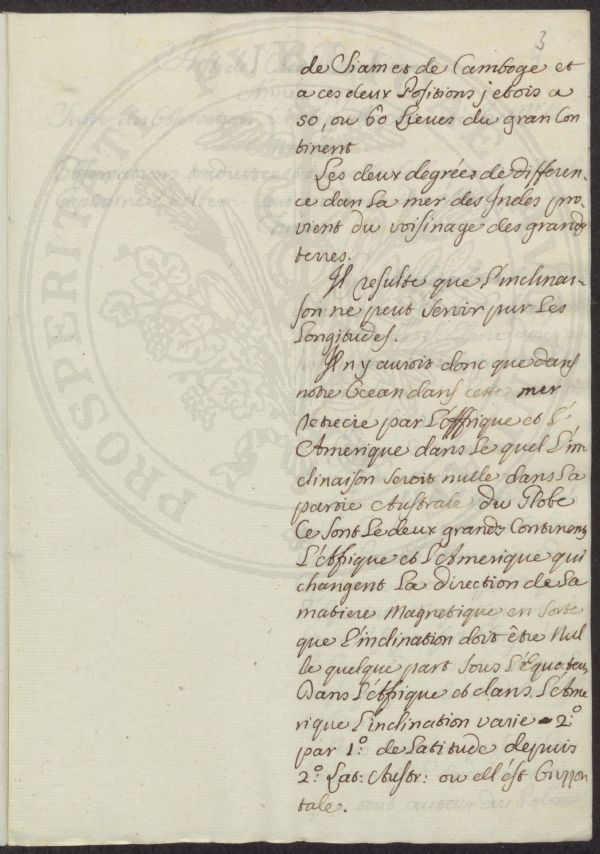 3
de Siam et de Camboge et
a ces deux Positions j'etois a
50, ou 60 Lieues du gran Con
tinent
Les deux degrées de differen-
ce dan La mer des Indes pro-
vient du voisinage des grands
terres.
Il resulte que l'inclinai-
son ne peut servir pur Les
Longitudes.
Il n'y auroit donc que dans
notre Ocean dans cette mer
retrecie par L'Affrique et L'
Amerique dans Le quel L'in
clinaison seroit nulle dans La
partie Australe du Globe
Ce sont Le deux grands Continens
L'Affrique et L'Amerique qui
changent La direction de La
matiere Magnetique en sorte
que l'inclination doit être Nul
le quelque part sous L'Equateur,
Dans L'Affrique et dans L'Ame
rique L'inclination varie 2°
par 1° de Latitude depuis
2° Lat: Austr: ou ell'ést
tale.
PROSPERITATE